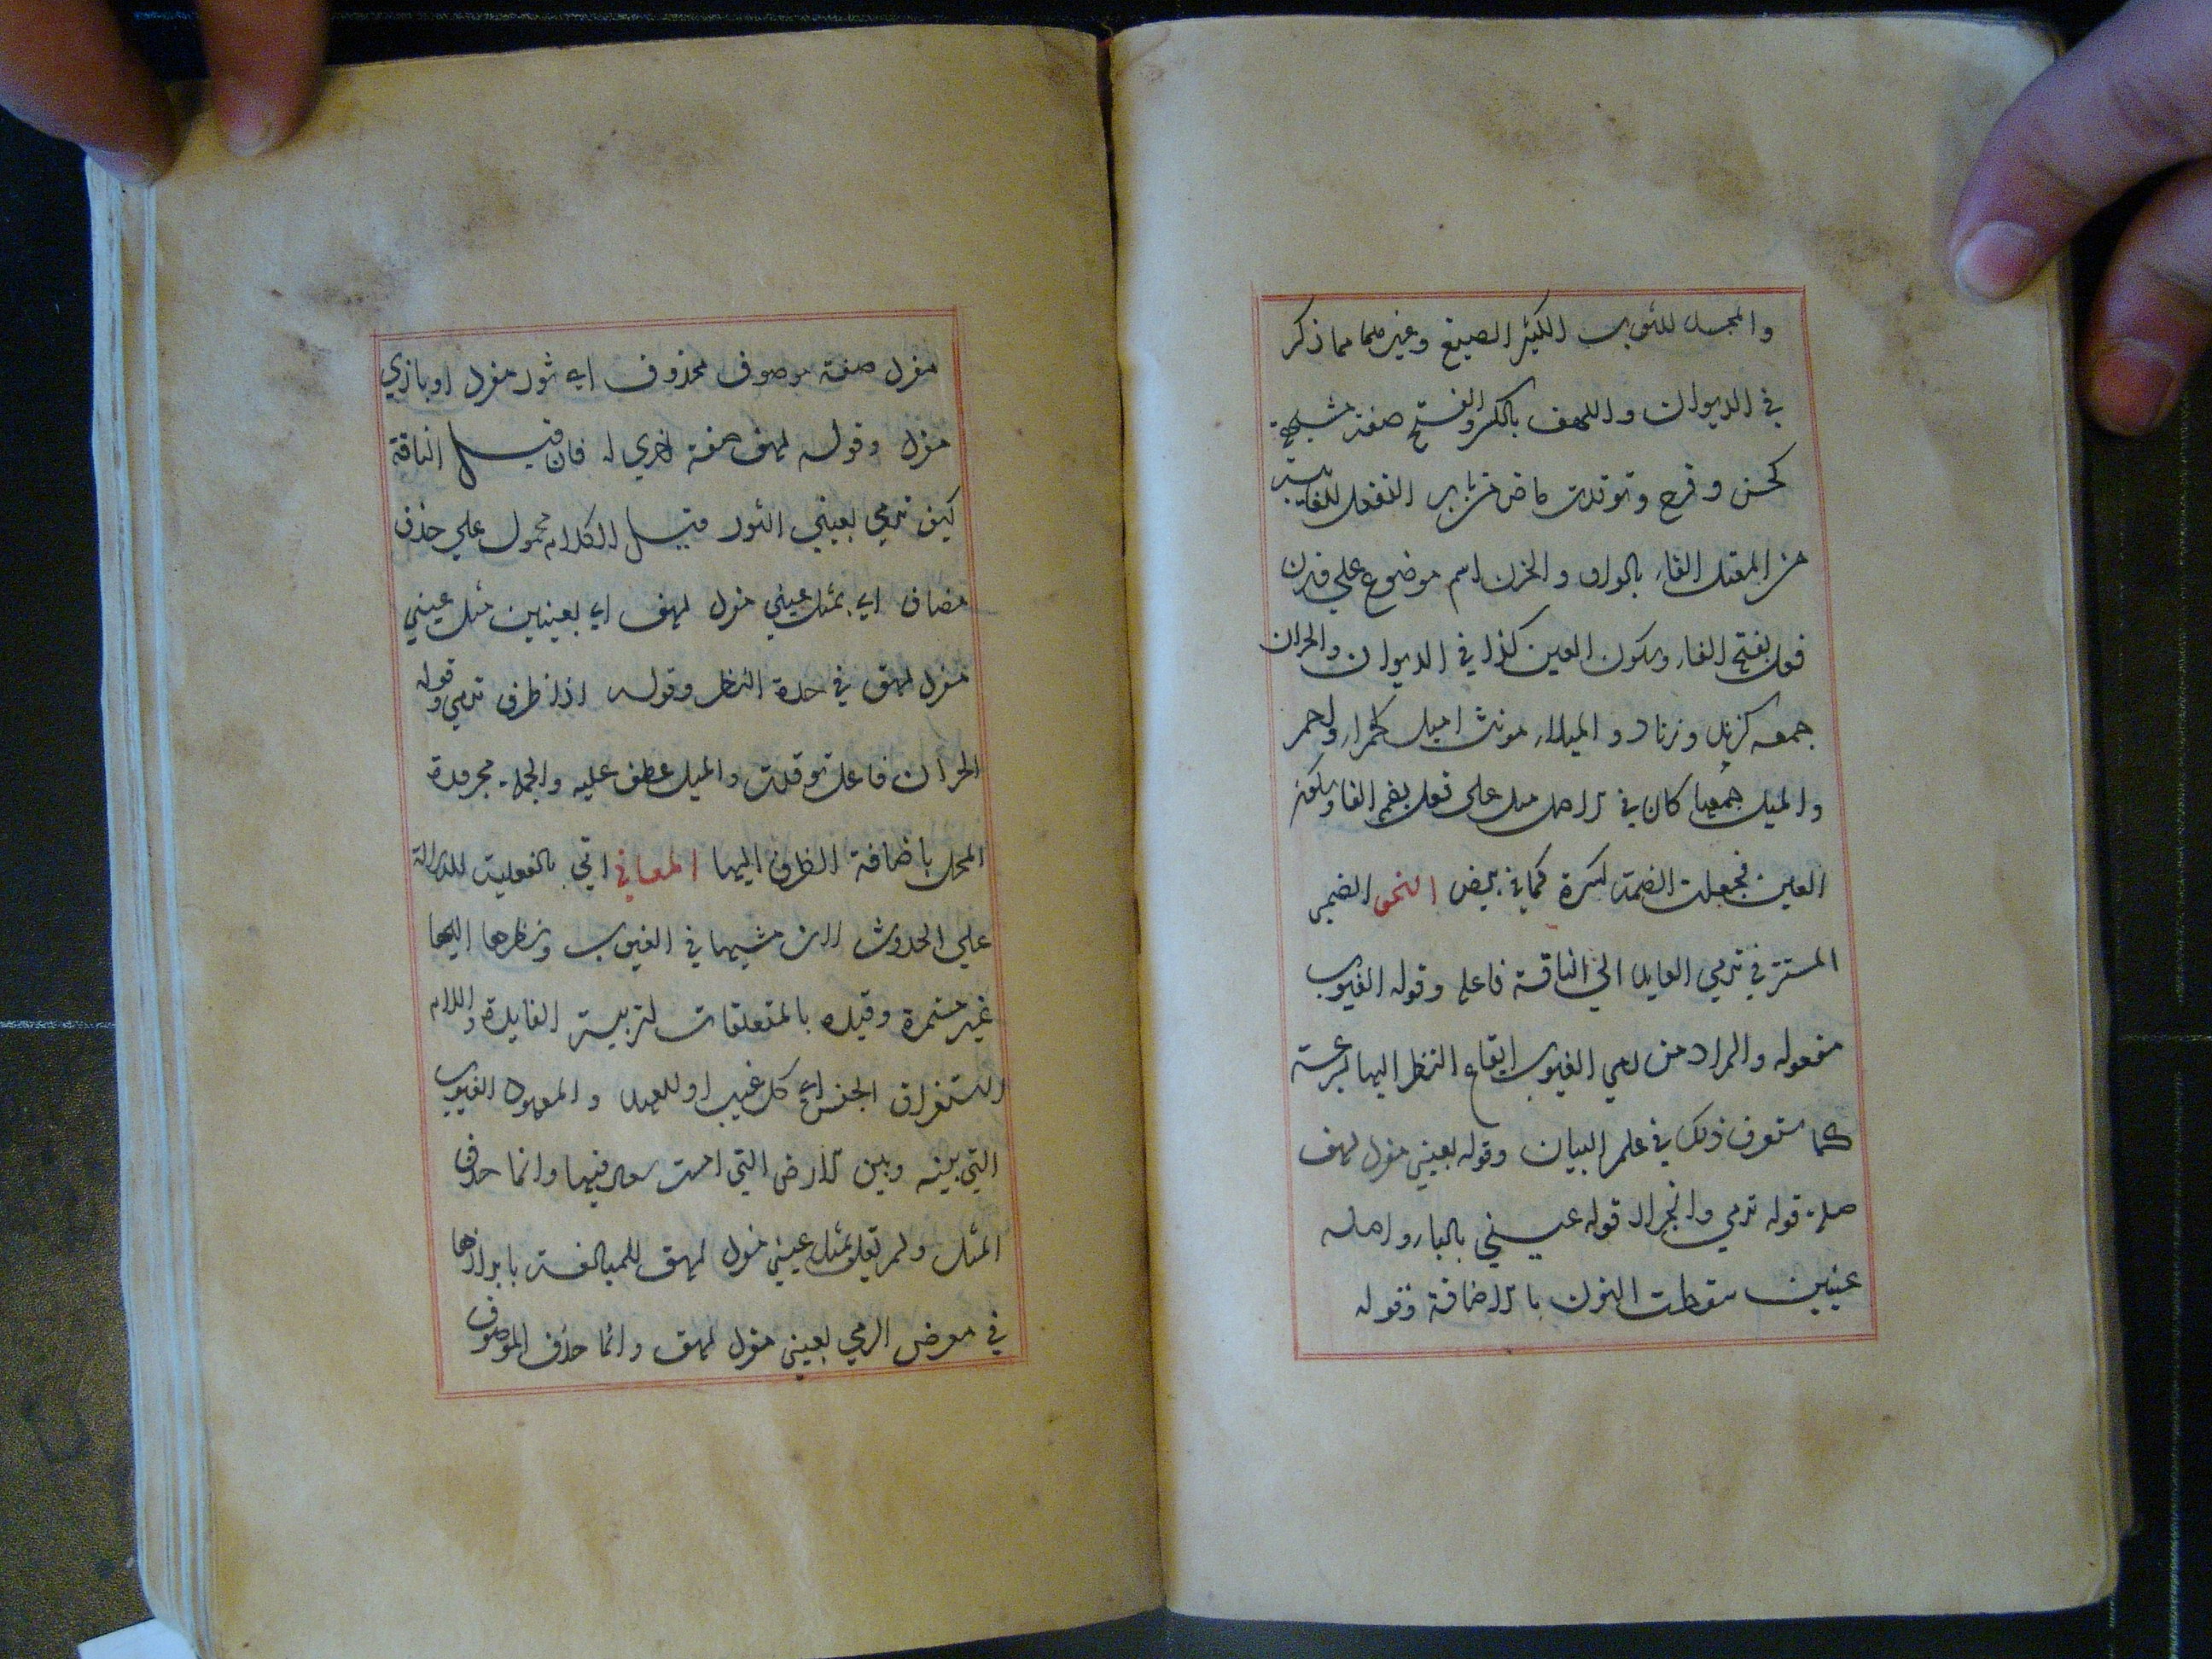 والمجسد للثوب الكثير الصبغ وغيرهما مما ذكر
في الديوان واللهف بالكسر والفتح صفة مشبهة
كحسن وفرح وتوقدت ماض من باب التفعل للفاية
من المعتل الفاء بالواو والحزن اسم موضوع علي وزن
فعل بفتح الفاء وسكون العين كذا في الديوان والحزان
جمعه كزند وزناد والميلاء مونث اميل كحمراء واحمر
والميل جمعها كان في الاصل ميل علي فعل بضم الفا وسكون
العين فجعلت الضمة كسرة كما في بيض النحو الضمير
المستتر في ترمي العايد الي الناقة فاعله وقوله الغيوب
مفعوله والمراد من رمي الغيوب ايقاع النظر اليها بسرعة
كما ستعرف ذلك في علم البيان وقوله بعيني مفرد لهف
صلة قوله ترمي وانجرار قوله عيني بالباء واصله
عينين سقطت النون بالاضافة وقوله
مفرد صفة موصوف محذوف اي ثور مفرد او بازي
مفرد وقوله لهف صفة اخري له فان قيل الناقة
كيف ترمي بعيني الثور قيل الكلام محمول علي حذف
مضاف اي بمثل عيني مفرد لهف اي بعينين مثل عيني
مفرد لهق في حدة النظر وقوله اذا ظرف ترمي وقوله
الحزان فاعل توقدت والميل عطف عليه والجملة مجرورة
المحل باضافة الظرف اليها المعاني اتي بالفعلية للدلالة
علي الحدوث لان مشيها في الغيوب ونظرها اليها
غير مستمرة وقيده بالمتعلقات لتربية الفايدة واللام
لاستغراق الجنس اي كل غيب او للعهد والمعهود الغيوب
التي بينه وبين الارض التي امست سعاد فيها وانما حذف
المثل ولم يقل بمثل عيني مفرد لهق للمبالغة بابرازها
في معرض الرمي بعيني مفرد لهق وانما حذف الموصوف